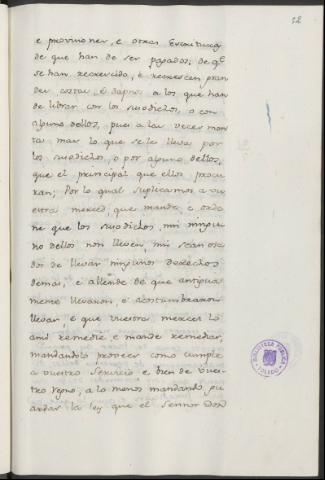 12
e provisiones, e otras Escrituras
de que han de ser pagados; de q̃
se han recrecido, e recrescen gran
des costas, e daños a los que han
de librar con los susodichos, o con
alguno dellos, pues a las veces mon
ta mas lo que se les lleva por
los susodichos, o por alguno dellos,
que el principal que ellos procu
ran; Por lo qual suplicamos a vu
estra merced, que mande, e orde
ne que los susodichos, nin ningu
no dellos non lleven, nin sean osa
dos de llevar ningunos derechos
demas, e allende de que antigua
mente llevaron, e acostumbraron
llevar, e que vuestra merced lo
ansi remedie, e mande remediar,
mandandolo proveer como cumple
a vuestro servicio, e bien de vues
tro regno, a lo menos mandando gu
ardar la ley que el Sennor Don
BIBLIOTECA PUBLICA
TOLEDO